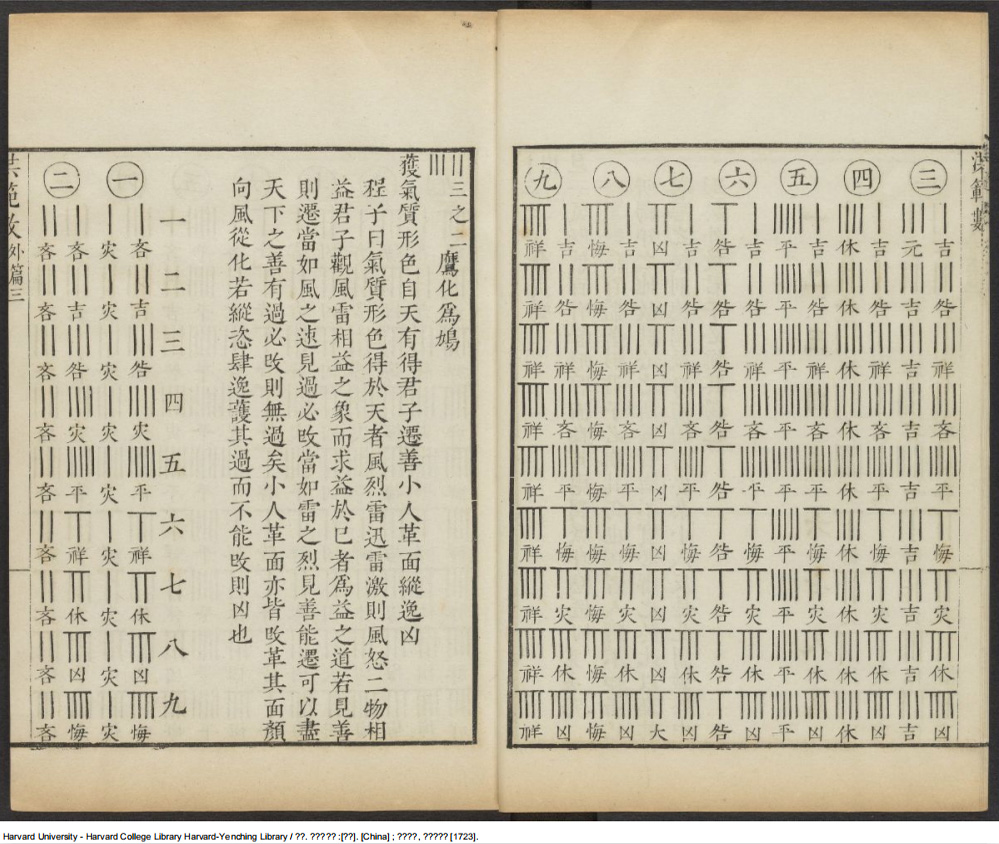 範數
三
吉咎祥吝平悔灾休凶
元吉吉吉吉吉吉吉吉
四
吉咎祥吝平悔灾休凶
休休休休休休休休休
五
吉咎祥吝平悔灾休凶
平平平平平平平平平
六
吉咎祥吝平悔灾休凶
咎咎咎咎咎咎咎咎咎
七
吉咎祥吝平悔灾休凶
凶凶凶凶凶凶凶凶大
八
吉咎祥吝平悔灾休凶
悔悔悔悔悔悔悔悔悔
九
吉咎祥吝平悔灾休凶
祥祥祥祥祥祥祥祥祥
三之二 鷹化爲鳩
獲氣質形色自天有得君子遷善小人革面縱逸凶
程子曰氣質形色得於天者風烈雷迅雷激則風怒二物相
益君子觀風雷相益之象而求益於已者爲益之道若見善
則遷當如風之速見過必改當如雷之烈見善能遷可以盡
天下之善有過必改則無過矣小人革面亦皆改革其面顏
向風從化若縱恣肆逸護其過而不能改則凶也
一二三四五六七八九
一
吝吉咎灾平祥休凶悔
灾灾灾灾灾灾灾灾灾
二
吝吉咎灾平祥休凶悔
吝吝吝吝吝吝吝吝吝
範數 外篇三
Harvard University - Harvard College Library Harvard-Yenching Library / ??. ????? :[??]. [China] ; ????, ????? [1723].